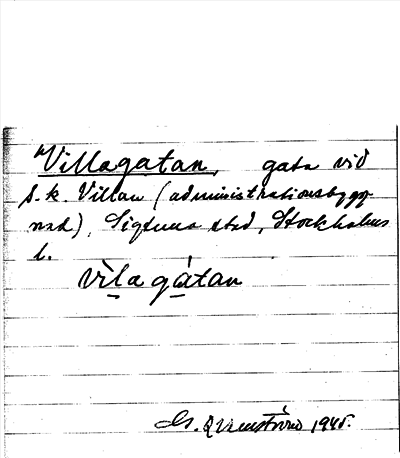 Villagatan, gata vid
s. k. Villan (administrationsbygg
nad), Sigtuna stad, Stockholms
l.
vìlagátan
1945.